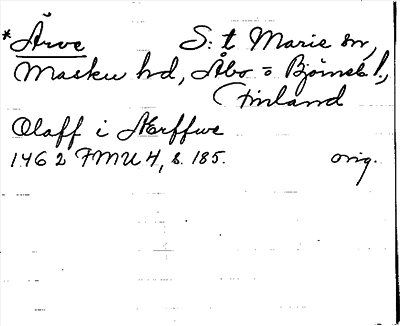 *Ärve S:t Marie sn,
Masku hd, Åbo o Björneb l.,
Finland
Olaff i Ærffwe
1462 FMU 4, s. 185. orig.